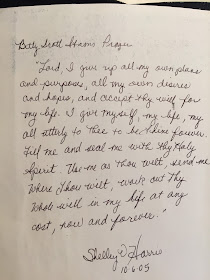 Betty Scott Stam's Prayer
"Lord, I give up all my own plans
and purposes, all my own desires
and hopes, and accept thy will for
my life. I give myself, my life, my
all utterly to Thee to be thine forever.
Fill me and seal me with thy Holy
Spirit. Use me as Thou wilt, send me
where Thou wilt, work out Thy
whole will in my life at any
cost, now and forever."
Shelley D Harris
10.6.05